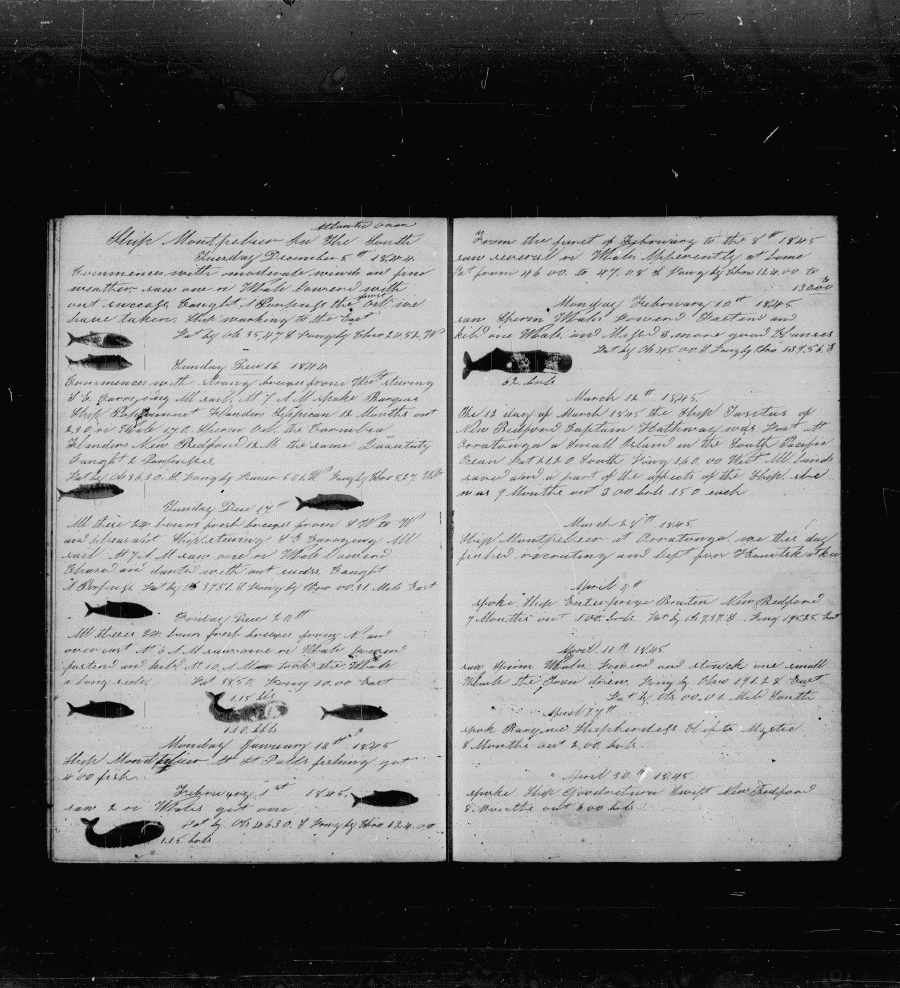 Atlantic Ocean
Ship Montpelier In The South
Thursday December 5th 1844
Commences with moderate winds and fine
weather saw one ri Whale lowered with
out success Caught 1 Porpuse the first Oil we
have taken. Ship working to the East
Lat by Ob 35,47 S Long by Chro 24.52, W
Sunday Dec 16 1844
Commences with strong breezes from West stearing
S E Carrying All sail. At 7 A M spoke Barque
Ship Flanders Sippican 12 Months out
230 ri Whale 170 Sperm Oil. the Cornelia
Flanders New Bedford 12 M the same Quantity
Caught 2 Porpuses
Lat by Ob 36.30 S Long by Lunar Long by Chro
Tuesday Dec 17th
All these 24 hours fresh breezes from N W to W
and pleasant Ship stearing S E Carrying All
sail At 7 A M saw one ri Whale lowered
Chased and with out success Caught
1 Porpuse Lat by Ob 37,51. S Long by Chro 00.31. Mils East
Friday Dec 20th
All theses 24 hours fresh breezes from N and
over cast At 6 A M saw one ri Whale lowered
fastend and kild At 10 A M took the Whale
a long side. Lat 38.50 Long 10.00 East
115 bls
110. bbls
Monday January 13th 1845
Ship Montpelier At St Palls fishing got
400 fish.
February 1st 1845
saw 2 ri Whales got one
Lat by Ob 46 30. S Long by Chro 124.00
115 bbls
From the first of February to the 8th 1845
saw several ri Whales Apperently at home
Lat from 46 00. to 47.08 S Long by Chro 124.00 to
130.00
Monday February 10th 1845
saw Sperm Whales Lowered Fastend and
kild one Whale and Mised 3 more good Chances
Lat by Ob 45.00 S Long by Chro 139.56 E
62 bbls
March 12th 1845.
The 12 day of March 1845 the Ship Tusctus of
New Bedford Captain Hathway was Lost At
Orratonga a Small Island in the South Pacific
Ocean Lat 21.20 South Long 160.00 West All hands
saved and a part of the affects of the Ship. she
was 9 Months out 300 bbls 150 each
March 28th 1845
Ship Montpelier at Orratonga. we this day
finished recruiting and left for Kamtskatka
April 4th
spoke Ship Enterprize Braton New Bedford
7 Months out 100. bbls Lat by Ob Long East
April 11th 1845
saw Sperm Whales Lowered and struck one small
Whale the Iron drew. Long by Chro East
Lat by Ob 00.02 Mils South
April 27th
spok Barque Shepherdess Clift Mystic
8 Months out 200 bbls.
April 30th 1845
spoke Ship Swift New Bedford
Months out 600 bbls